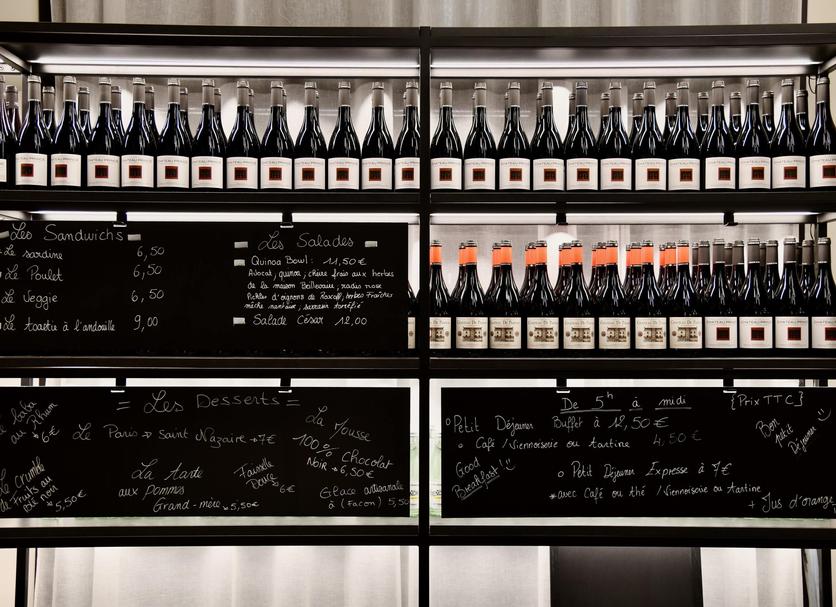 Les Sandwichs
Le sardine 6,50
Le Poulet 6,50
Le Veggie 6,50
Le toastie à l'andouille 9,00
Les Salades
Quinoa Bowl : 11,50€
Avocat, quinoa, chèvre frais aux herbes
de la maison Bellevaux, radis rose
Pickles d'oignons de Roscoff, herbes fraîches
mâche nantaise, sarrasin torréfié
Salade César 12,00
= Les Desserts =
baba
au Rhum
6€
Le Paris → Saint Nazaire → 7€
La tarte
aux pommes
Grand-mère → 5,50€
Faisselle
Douce
6€
La Mousse
100% Chocolat
Noir → 6,50€
Glace artisanale
à (Facon) 5,50
Le crumble
Fruits au
5,50€
De 5h à midi
{Prix TTC}
Petit Déjeuner Buffet à 12,50€
Café / Viennoiserie ou tartine 4,50€
Good
Breakfast!
Bon
petit
Déjeuner
Petit Déjeuner Expresse à 7€
*avec Café ou thé / Viennoiserie ou tartine
+ Jus d'orange